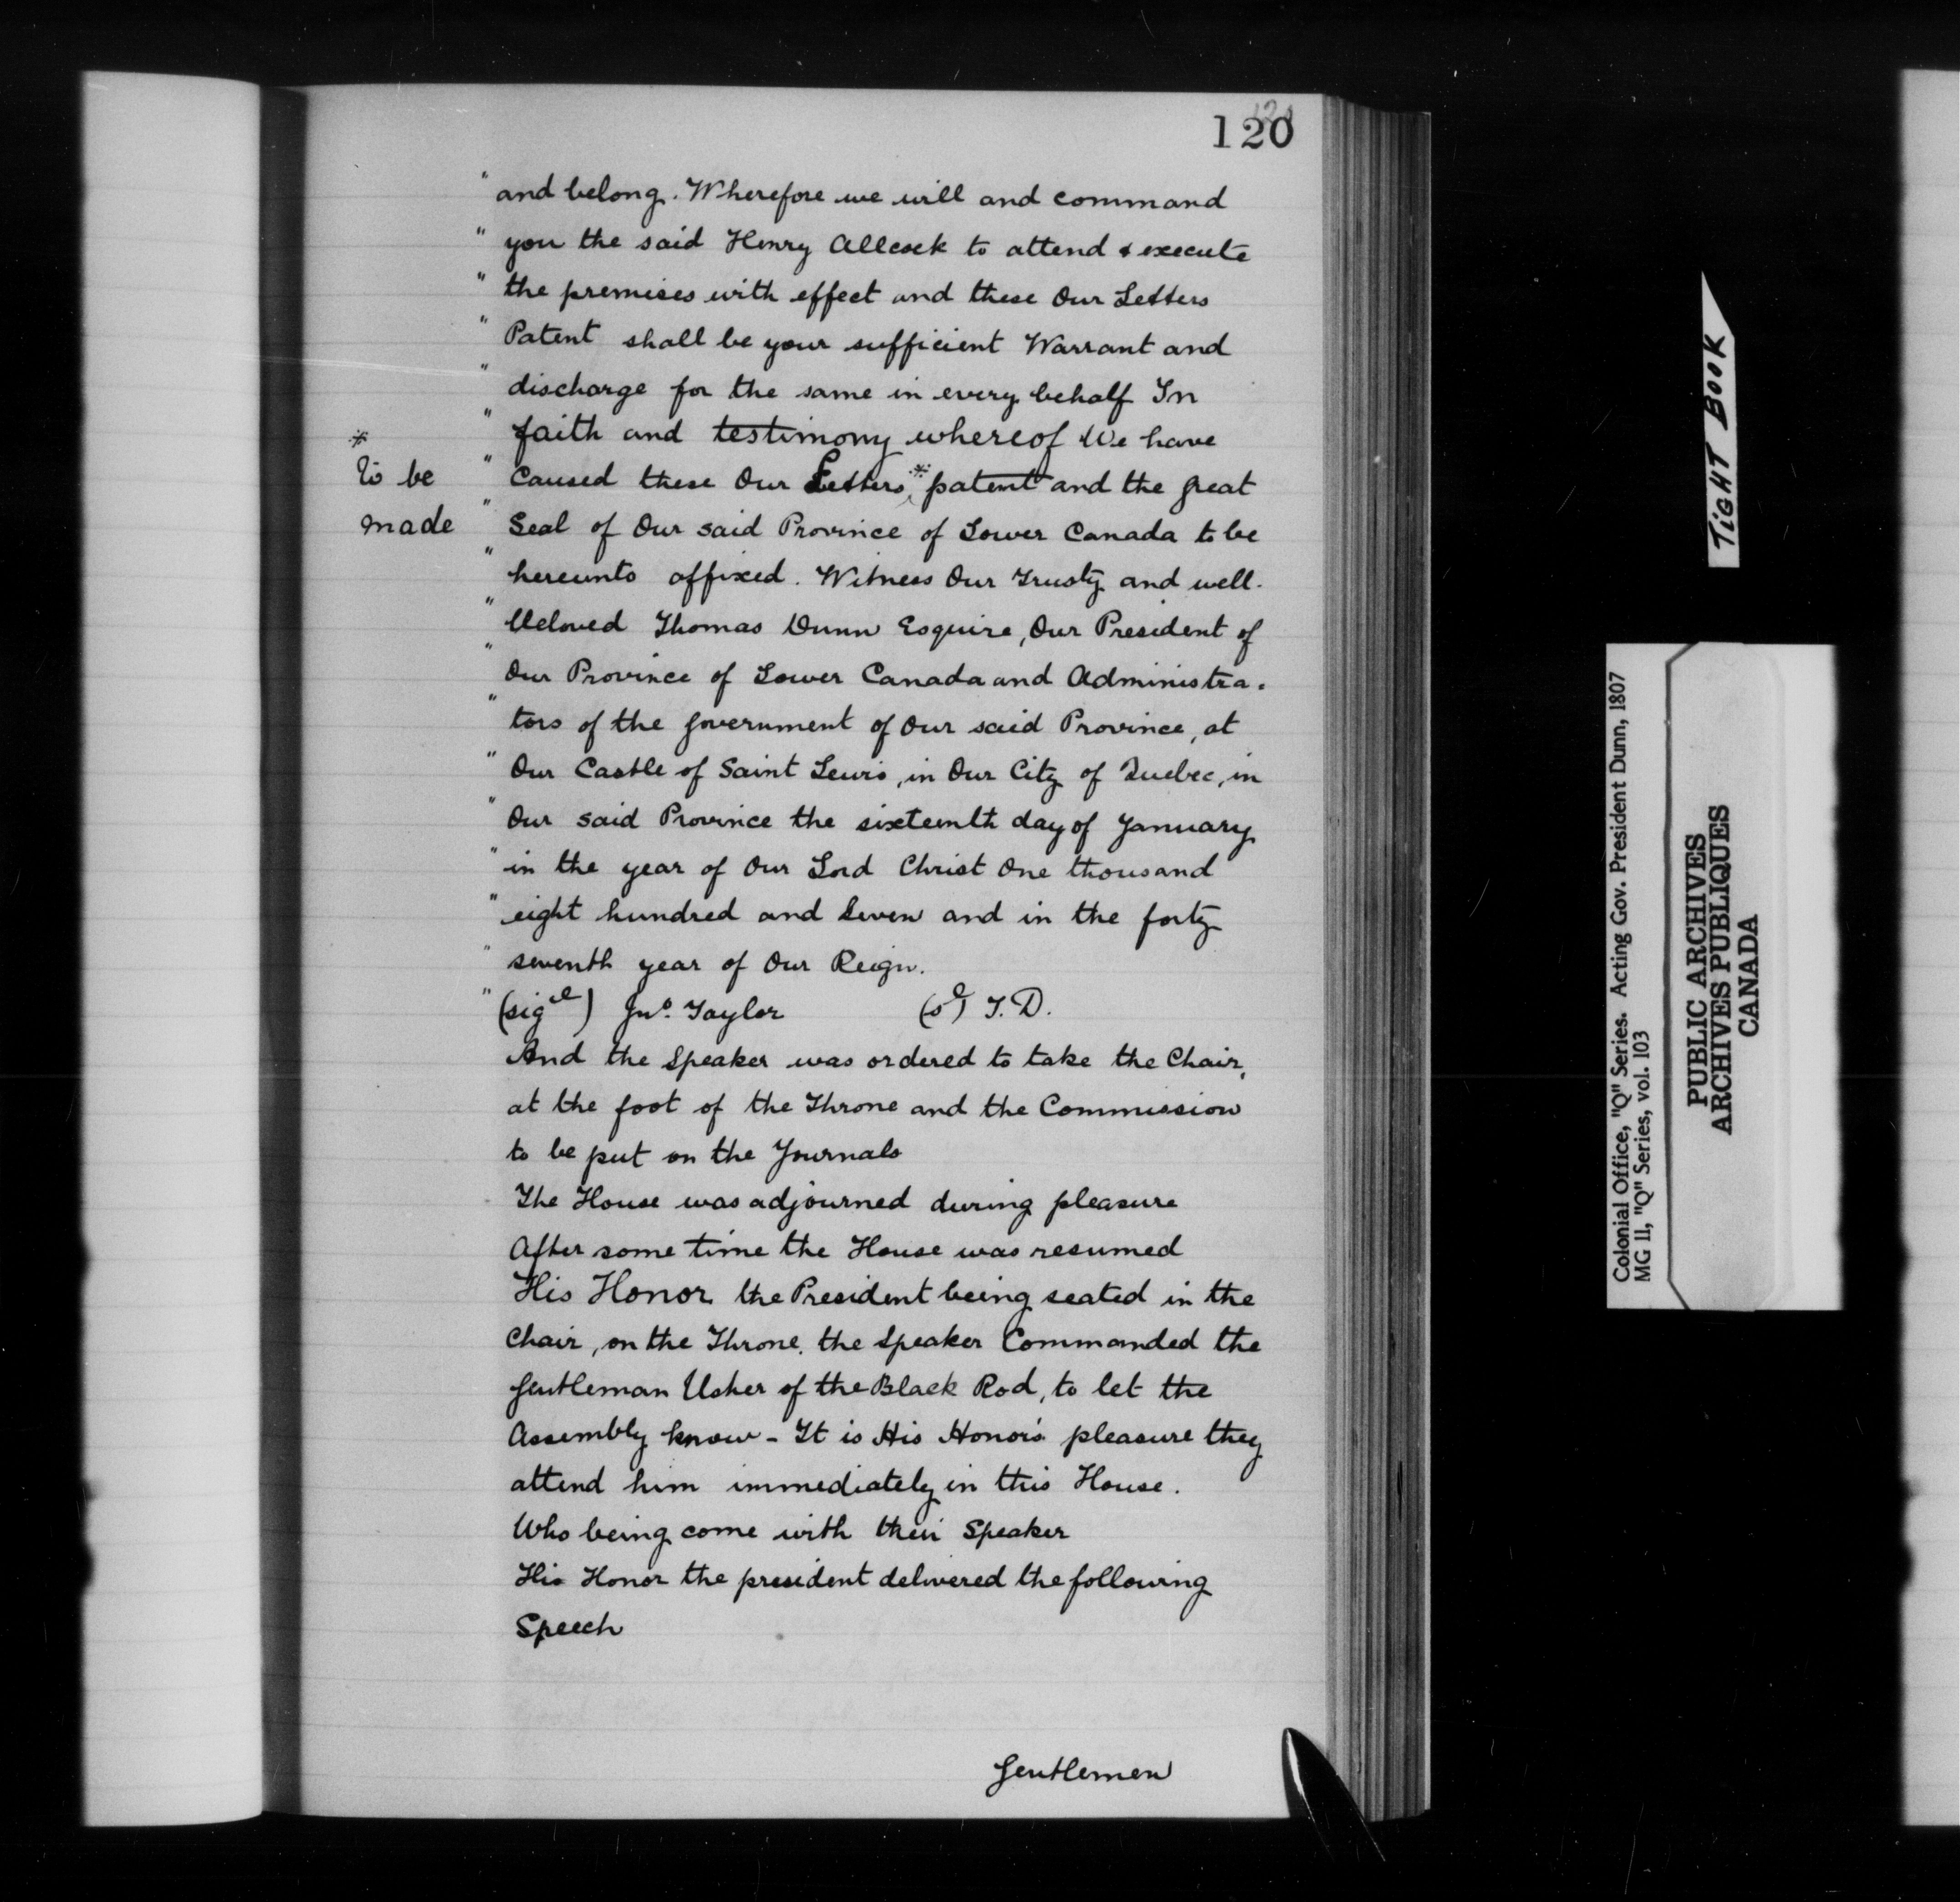 120
" and belong. Wherefore we will and command
" you the said Henry Allcock to attend & execute
" the premises with effect and these Our Letters
" Patent shall be your sufficient Warrant and
" discharge for the same in every behalf In
" faith and testimony whereof We have
" Caused these Our Letters * patent and the great
* To be
made
" Seal of Our said Province of Lower Canada to be
" hereunto affixed. Witness Our Trusty and well-
" beloved Thomas Dunn Esquire, Our President of
" Our Province of Lower Canada and Administra-
" tors of the government of Our said Province, at
" Our Castle of Saint Lewis, in Our City of Quebec, in
" Our said Province the sixteenth day of January
" in the year of Our Lord Christ One thousand
" eight hundred and Seven and in the forty
" seventh year of Our Reign.
" (sigd) Jno. Taylor (sd) T. D.
And the Speaker was ordered to take the Chair,
at the foot of the Throne and the Commission
to be put on the Journals
The House was adjourned during pleasure
After some time the House was resumed
His Honor the President being seated in the
Chair, on the Throne. the Speaker Commanded the
Gentleman Usher of the Black Rod, to let the
Assembly know - It is His Honor's pleasure they
attend him immediately in this House.
Who being come with their Speaker
His Honor the president delivered the following
Speech
Gentlemen
TIGHT BOOK
Colonial Office, "Q" Series. Acting Gov. President Dunn, 1807
MG 11, "Q" Series, vol. 103
PUBLIC ARCHIVES
ARCHIVES PUBLIQUES
CANADA